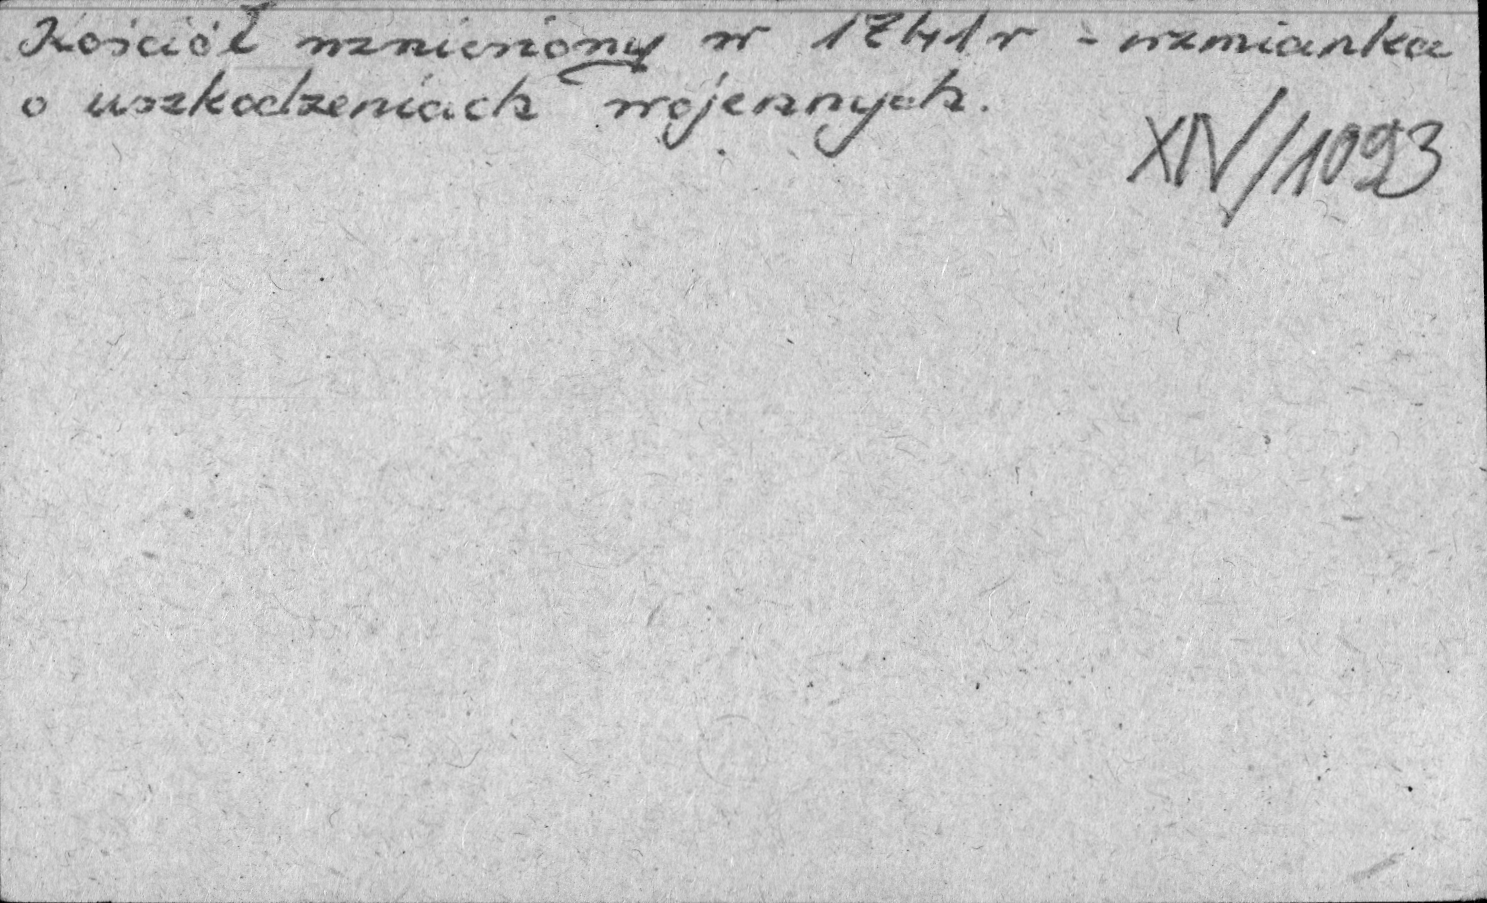 Kościół wzniesiony w 1741 r - wzmianka
o uszkodzeniach wojennych.
XIV/1093